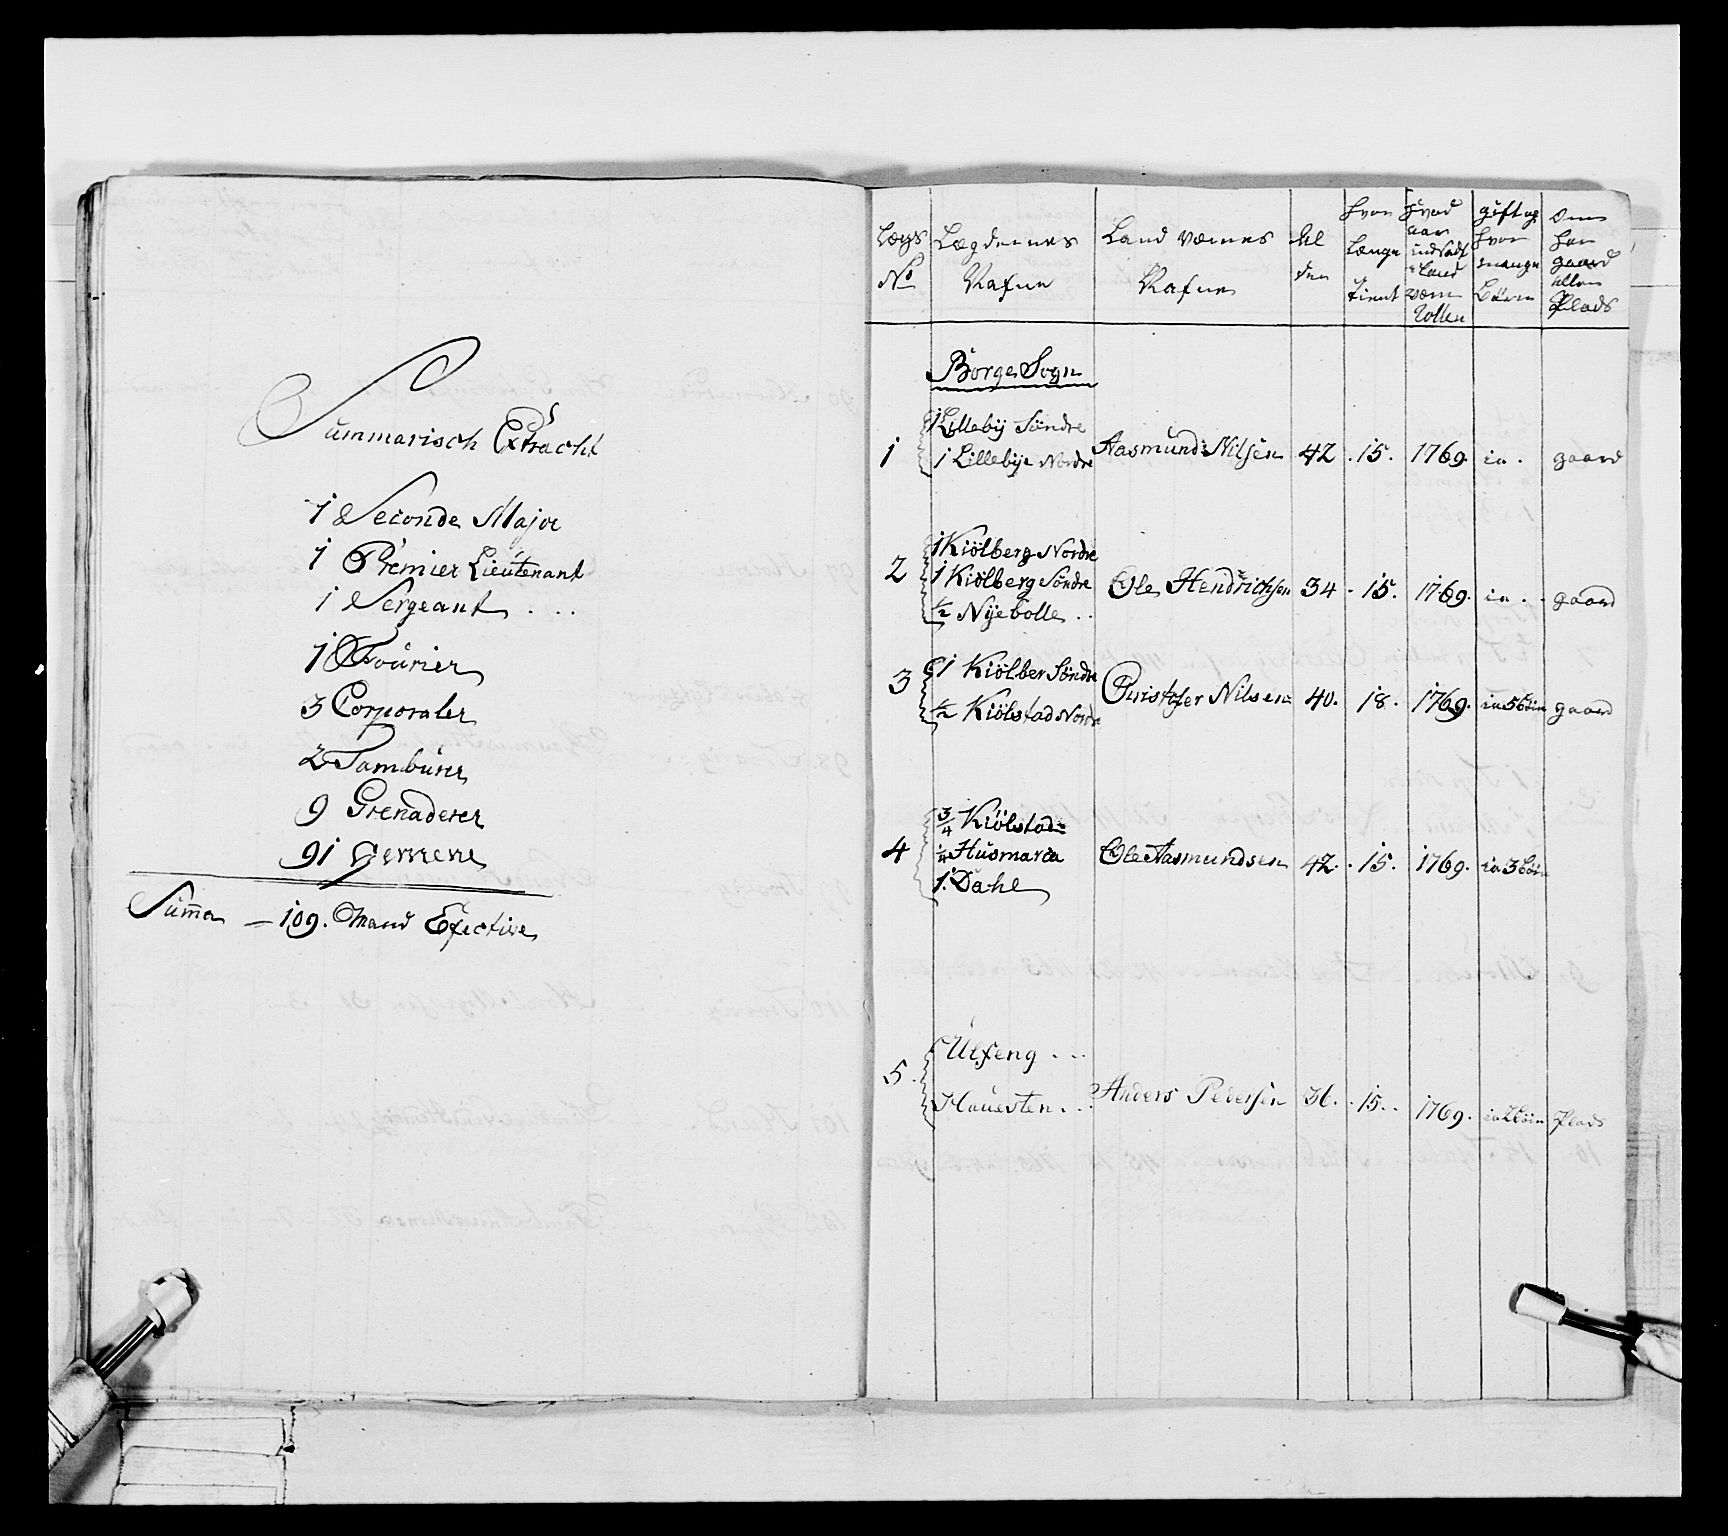 Summarisch Extracht
1 Seconde Major
1 Premier Lieutenant
1 Sergeant . . .
1 Fourier
3 Corporaler
2 Tambürer
9 Grenaderer
91 Gemene
Suma — 109. Mand Efective
Lægs No
Lægdernes Nafne
Land værnes Nafne
Al den
hvor Længe tient
hvad aar indsadt i Land værn Rollen
gift og hvor mange Börn
Om han gaard eller Plads
Borge Sogn
1 Lilleby Söndre
1 1 Lillebye Nordre Aasmund Nilsen 42 . 15. 1769. ia . gaard
1 Kiölberg Nordre
2 1 Kiölberg Söndre Ole Hendrichsen 34 . 15. 1769. ia . . gaard
1/2 Nyebolle . .
3 1 Kiölber Söndre Cristofer Nilsen 40. 18. 1769. ia 5 börn gaard
1/2 Kiölstad Nordre
3/4 Kiölstad
4 1/4 Husmarca Ole Aasmundsen 42. . 15. 1769. ia 3 bör
1. Dahl
5 Ulfeng . . .
Hauesten . . Anders Pedersen 36. . 15. . 1769. ia 2 börn Plads